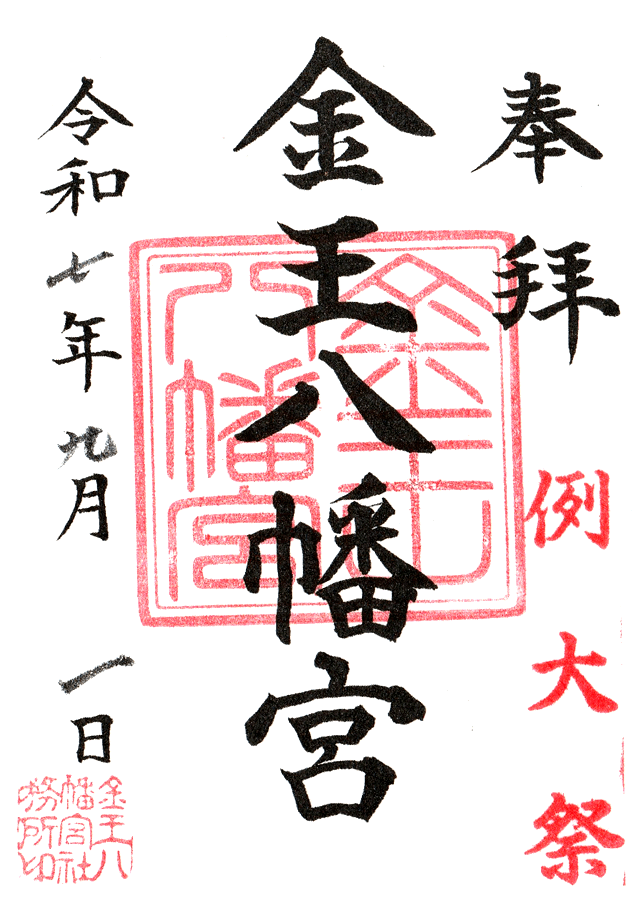 奉拝
例大祭
金王八幡宮
金王八幡宮
令和七年九月一日
金王八幡宮社務所印